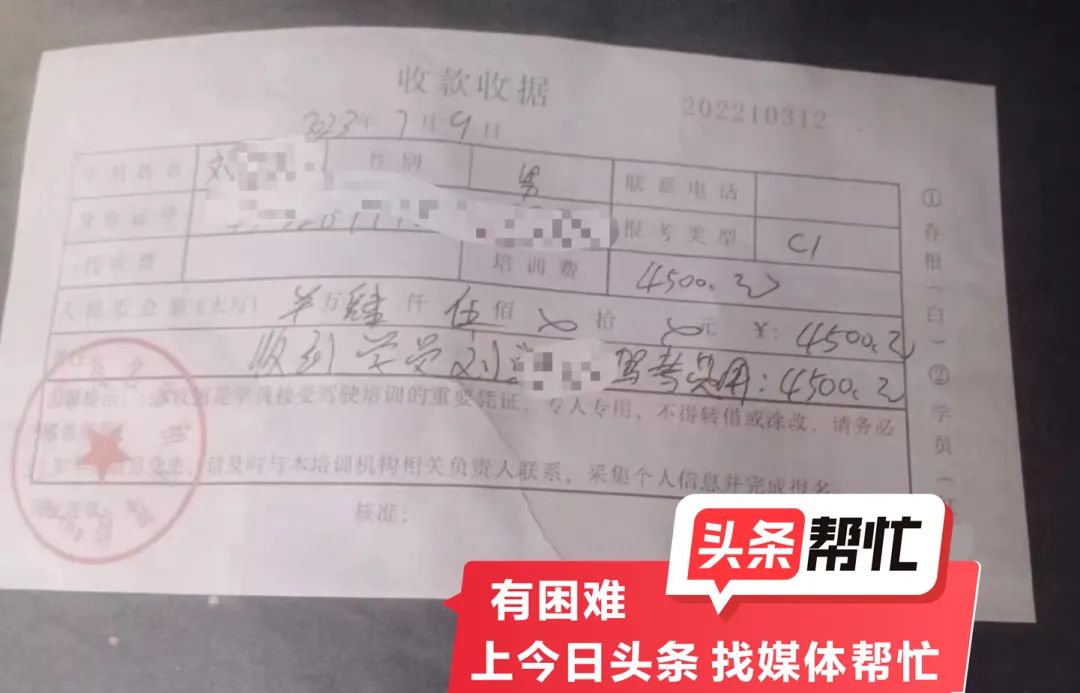 收款收据
202210312
2023年7月9日
性别 男 联系电话
身份证号 报考类型 C1
代收费 培训费 4500.00
人民币金额(大写) 万肆仟伍佰 拾 元 ¥:4500.00
收到学员刘 驾考费用:4500.00
是学员接受驾驶培训的重要凭证,专人专用,不得转借或涂改,请务必
请及时与本培训机构相关负责人联系,采集个人信息并完成报名
核准:
①存根(白)②学员(
头条帮忙
有困难
上今日头条 找媒体帮忙